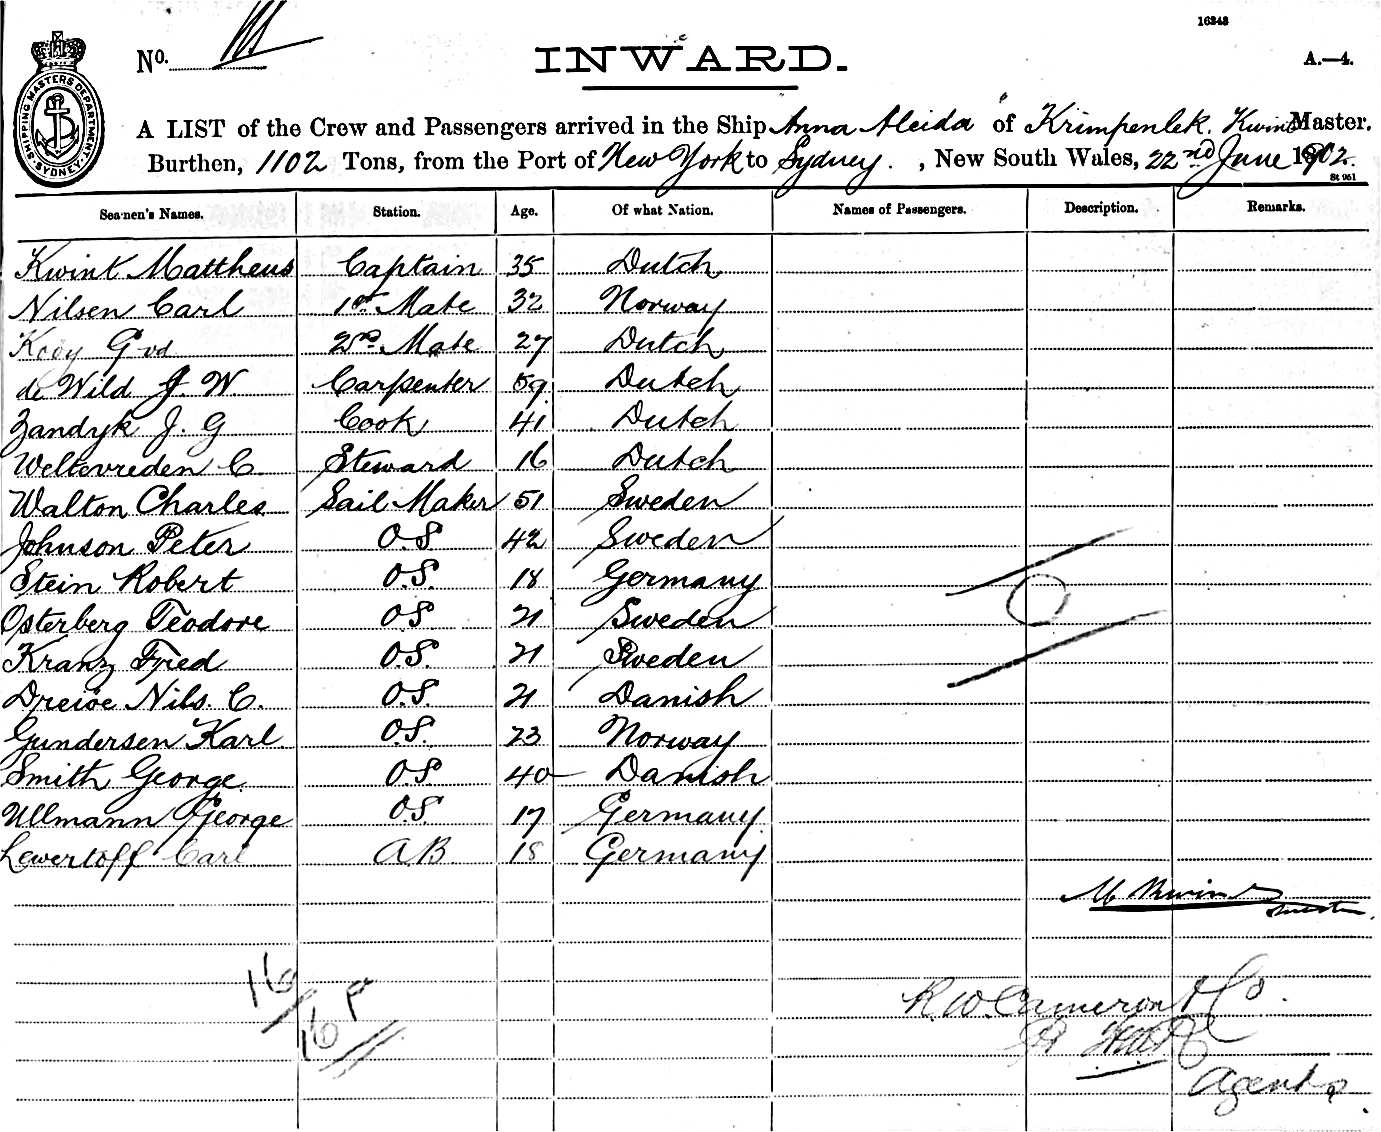 16343
No.
INWARD.
A.—4.
SHIPPING MASTERS DEPARTMENT SYDNEY
A LIST of the Crew and Passengers arrived in the Ship Anna Aleida of Krimpenlek. Kwint Master.
Burthen, 1102 Tons, from the Port of New York to Sydney. , New South Wales, 22nd June 1902.
St 961
Seamen's Names. Station. Age. Of what Nation. Names of Passengers. Description. Remarks.
Kwint Mattheus Captain 35 Dutch
Nilsen Carl 1st Mate 32 Norway
2nd Mate 27 Dutch
de Wild J. W. Carpenter 59 Dutch
Zandyk J. G Cook 41 Dutch
Weltevreden C. Steward 16 Dutch
Walton Charles Sail Maker 51 Sweden
Johnson Peter O.S 42 Sweden
Stein Robert O.S. 18 Germany
Osterberg Teodore O S 21 Sweden
Kranz Fried O.S. 21 Sweden
Nils. C. O.S. 21 Danish
Gundersen Karl O.S. 23 Norway
Smith George O S 40 Danish
Ullmann George O S. 17 Germany
Lewertoff Carl A B 18 Germany
M Kwint
Master.
16
16
R. W. Cameron & Co.
Agents